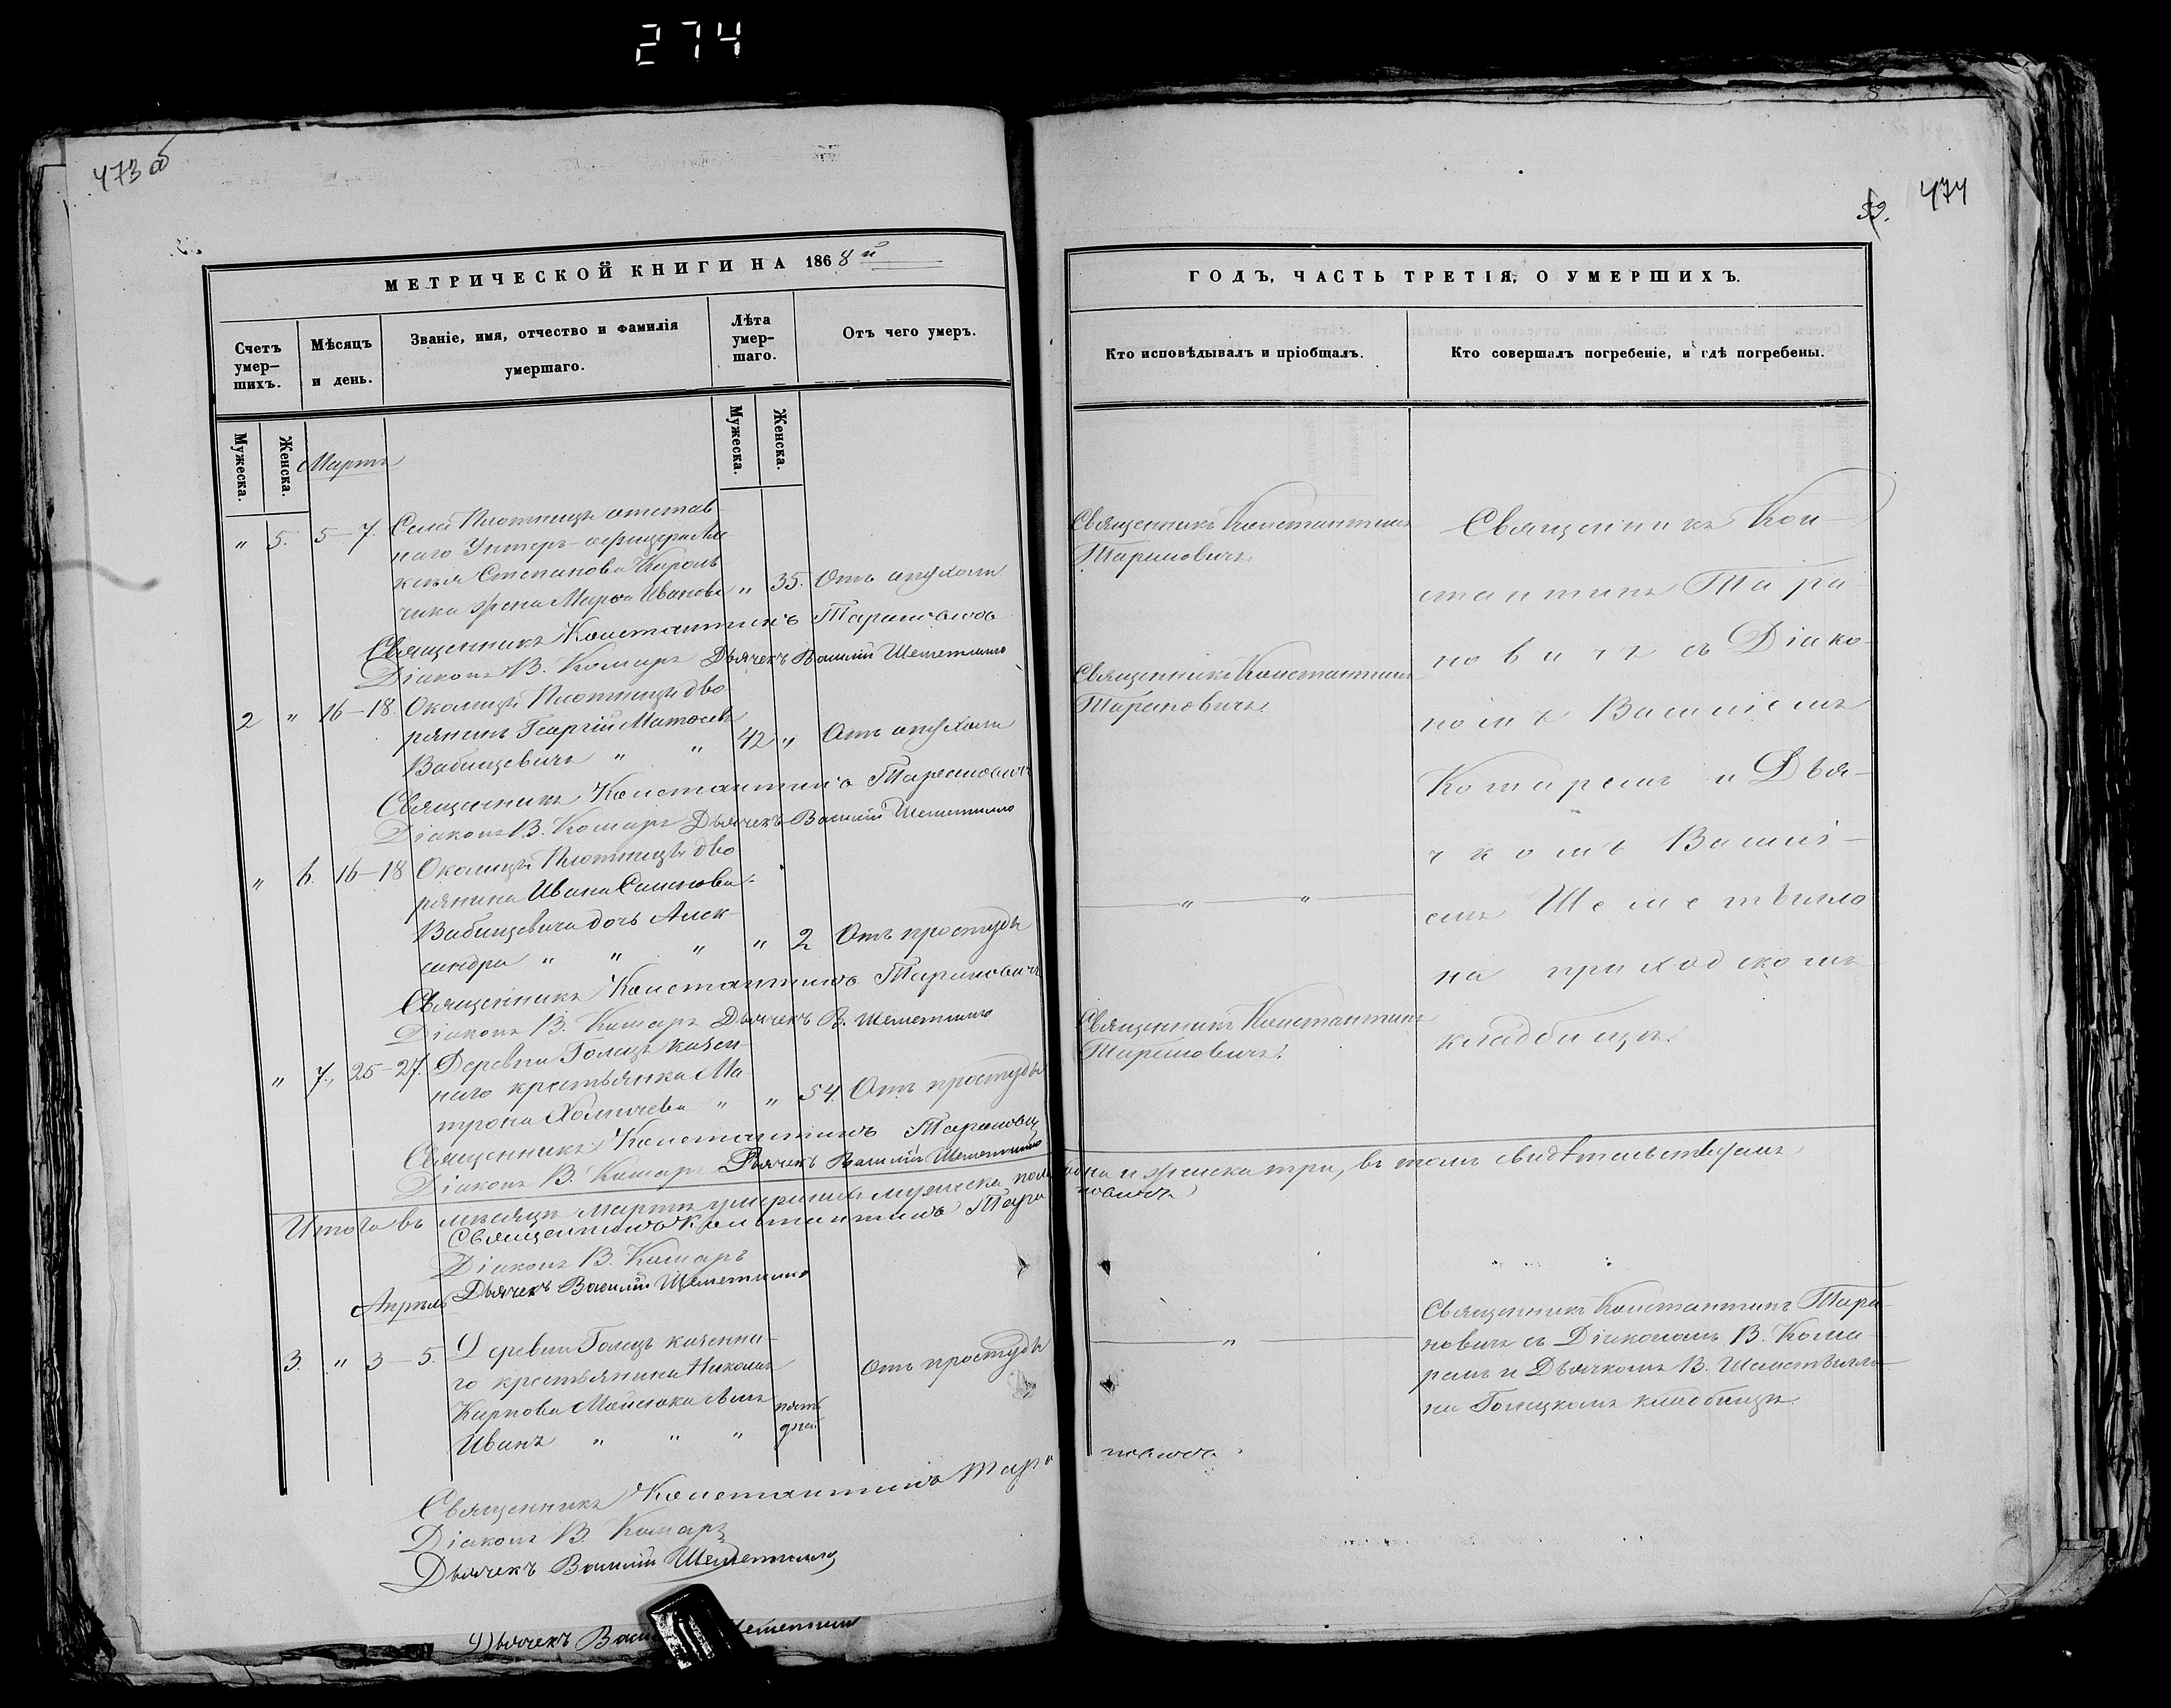 274
473 об
МЕТРИЧЕСКОЙ КНИГИ НА 1868й
Счетъ умер-шихъ.
Мѣсяцъ и день.
Званіе, имя, отчество и фамилія умершаго.
Лѣта умер-шаго.
Отъ чего умеръ.
Мужеска.
Женска.
Мужеска.
Женска.
Мартъ
" 5. 5-7. Села Плотницы отстав-
наго Унтеръ-офицера
Степанова Король
чика жена Марѳа Иванова " 35. Отъ опухоли
Священникъ Константинъ Тарановичъ
Діаконъ В. Комаръ Дьячекъ Василій Шеметилло
2 " 16-18. Околицы Плотницы дво
рянинъ Георгій Матѳеевъ
Вабищевичъ " " 42 " Отъ опухоли
Священникъ Константинъ Тарановичъ
Діаконъ В. Комаръ Дьячекъ Василій Шеметилло
" 6. 16-18 Околицы Плотницы дво
рянина Ивана Семенова
Вабищевича дочь Алек
сандра " " " " 2 Отъ простуды
Священникъ Константинъ Тарановичъ
Діаконъ В. Комаръ Дьячекъ В. Шеметилло
" 7. 25-27. Деревни Голецъ казен
наго крестьянка Ма
трона " " 54. Отъ простуды
Священникъ Константинъ Тарановичъ
Діаконъ В. Комаръ Дьячекъ Василій Шеметилло
Итого въ мѣсяцѣ Мартѣ умершихъ мужеска пола одна и женска три, въ томъ свидѣтельствуемъ
Священникъ Константинъ Тарановичъ
Діаконъ В. Комаръ
Дьячекъ Василій Шеметилло
Апрѣль
3. " 3-5. Деревни Голецъ казенна-
го крестьянина Николая
Карпова Мойсюка сынъ
Иванъ " " " пять дней Отъ простуды
Священникъ Константинъ Тарановичъ
Діаконъ В. Комаръ
Дьячекъ Василій Шеметилло
Дьячекъ Васи Шеметилло
59. 474
ГОДЪ, ЧАСТЬ ТРЕТІЯ, О УМЕРШИХЪ.
Кто исповѣдывалъ и пріобщалъ.
Кто совершалъ погребеніе, и гдѣ погребены.
Священникъ Константинъ
Тарановичъ.
Священникъ Константинъ
Тарановичъ.
" "
Священникъ Константинъ
Тарановичъ.
"
Священникъ Кон-
стантинъ Тара
новичъ съ Діако-
номъ Василіемъ
Комаремъ и Дья-
чкомъ Василі-
емъ Шеметылло
на приходскомъ
кладбищѣ.
Священникъ Константинъ Тара-
новичъ съ Діакономъ В. Кома-
ремъ и Дьячкомъ В. Шеметылло-
на Голецкомъ кладбищѣ.